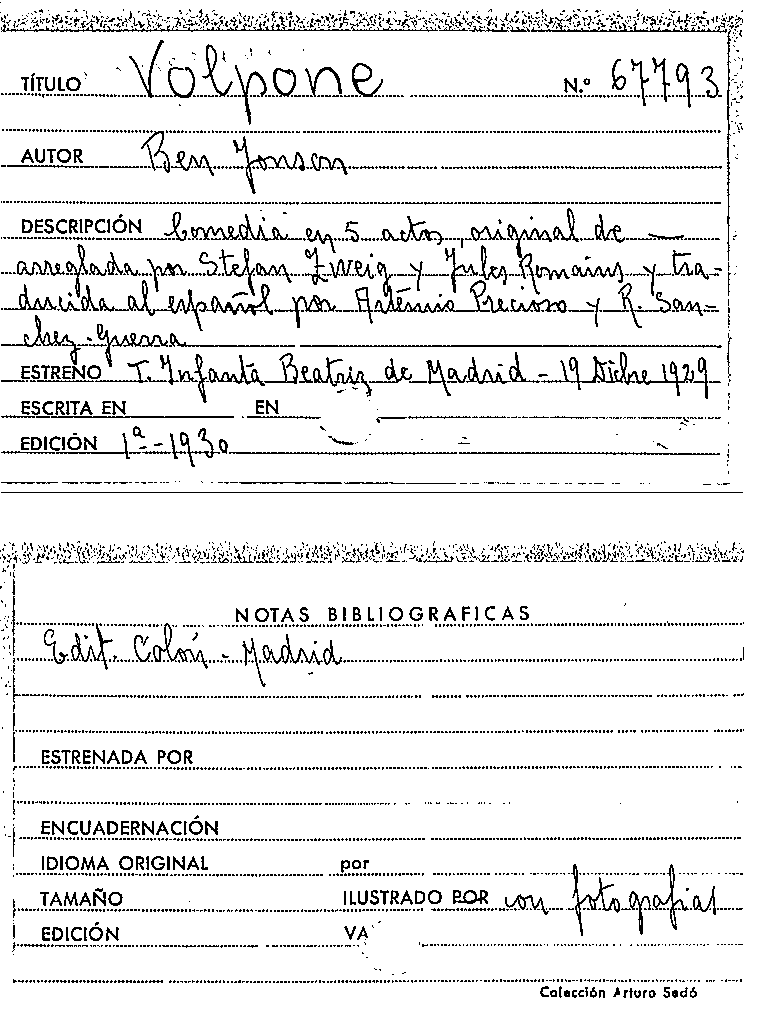 TÍTULO Volpone N.º 67793
AUTOR Ben Jonson
DESCRIPCIÓN Comedia en 5 actos, original de —
arreglada por Stefan Zweig y Jules Romains y tra-
ducida al español por Artemio Precioso y R. San-
chez-Guerra
ESTRENO T. Infanta Beatriz de Madrid - 19 Dicbre 1929
ESCRITA EN EN
EDICIÓN 1ª - 1930
NOTAS BIBLIOGRAFICAS
Edit. Colón - Madrid
ESTRENADA POR
ENCUADERNACIÓN
IDIOMA ORIGINAL por
TAMAÑO ILUSTRADO POR con fotografias
EDICIÓN VA
Colección Arturo Sedó